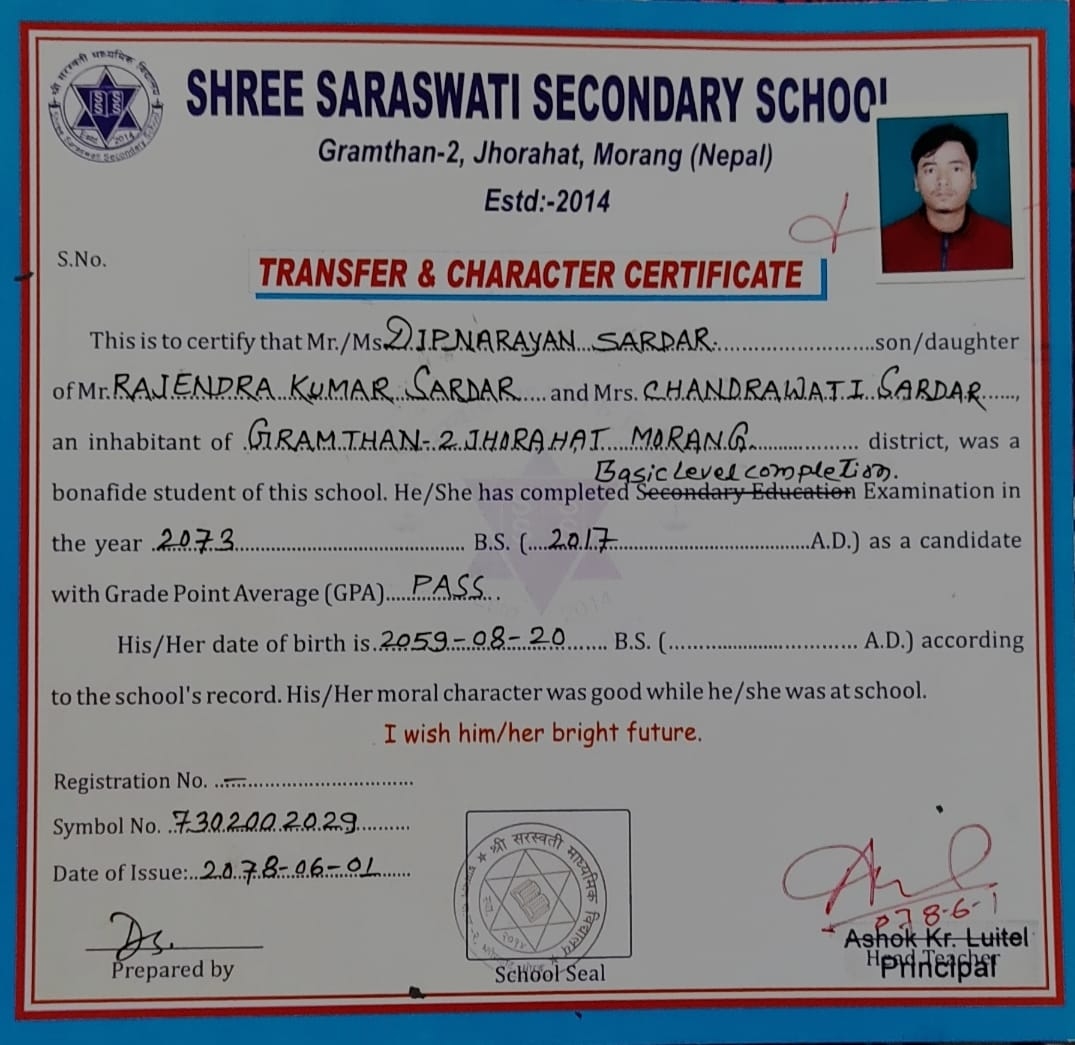 श्री सरस्वती माध्यमिक विद्यालय
2014
Shree Saraswati Secondary School
SHREE SARASWATI SECONDARY SCHOOL
Gramthan-2, Jhorahat, Morang (Nepal)
Estd:-2014
S.No.
TRANSFER & CHARACTER CERTIFICATE
This is to certify that Mr./Ms. DIPNARAYAN SARDAR. son/daughter
of Mr. RAJENDRA KUMAR SARDAR and Mrs. CHANDRAWATI SARDAR,
an inhabitant of GRAMTHAN-2 JHORAHAT MORANG district, was a
Basic level completion.
bonafide student of this school. He/She has completed Secondary Education Examination in
the year 2073 B.S. ( 2017 A.D.) as a candidate
with Grade Point Average (GPA) PASS.
His/Her date of birth is 2059-08-20 B.S. ( A.D.) according
to the school's record. His/Her moral character was good while he/she was at school.
I wish him/her bright future.
Registration No. -
Symbol No. 7302002029
Date of Issue: 2078-06-01
श्री सरस्वती माध्यमिक विद्यालय
२०१४
078-6-1
Ashok Kr. Luitel
Head Teacher
Principal
Prepared by
School Seal